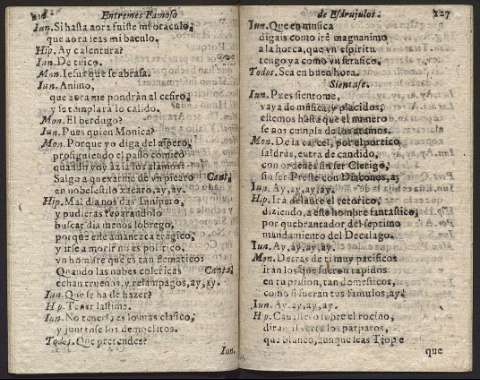 Entremes Famoso
Iun. Si hasta aora fuiste mi oraculo,
que aora seas mi baculo.
Hip. Ay calentura?
Iun. De
Mon. Iesus que se abrasa.
Iun. Animo,
que aora me pondràn al cesiro,
y se templarà lo calido.
Mon. El berdugo?
Iun. Pues quien Monica?
Mon. Porque yo diga del aspero,
prosiguiendo el passo comico
quando voy azia los
Salga a quexarme de vn picaro
en xacaro, ay, ay.
Cant.
Hip. Mal dia nos das Iunipero,
y pudieras reparandolo
buscar dia menos lobrego,
porque este amanezca tragico,
y irse a morir no es politico,
vn hombre que es tan flematico
Quando las nubes colericas
Cant.
echan truenos, y relampagos, ay, ay.
Iun. Que se ha de hazer?
Hip. Tener lastima.
Iun. No teneis, es lo mas clasico,
y juntense los
Todos. Que pretendes?
Iun.
de Esdrujulos. 227
Iun. Que en musica
digais como irè magnanimo
a la horca, que vn espiritu
tengo ya como vn serafico.
Todos. Sea en buen hora.
Sientase.
Iun. Pues sientome,
vaya de musica, y placidos,
estemos hasta que el numero
se nos cumpla de los atomos.
Mon. De la carcel, por el portico
saldràs, entra de candido,
con ordenes sin ser Clerigo,
sin ser Preste con Diaconos, ay
Iun. Ay, ay, ay, ay.
Hip. Irà delante el retorico,
diziendo, a este hombre fantastico,
por quebrantador del septimo
mandamiento del Decalago.
Iun. Ay, ay, ay, ay.
Mon. Detras de ti muy pacificos
iràn los que fueron rapidos
en tu prision, tan domesticos,
como si fueran tus famulos, ay,
Iun. Ay, ay, ay, ay.
Hip. Cauallero sobre el rocino,
diràn al verte los patparos,
que blanco, aunque seas
que